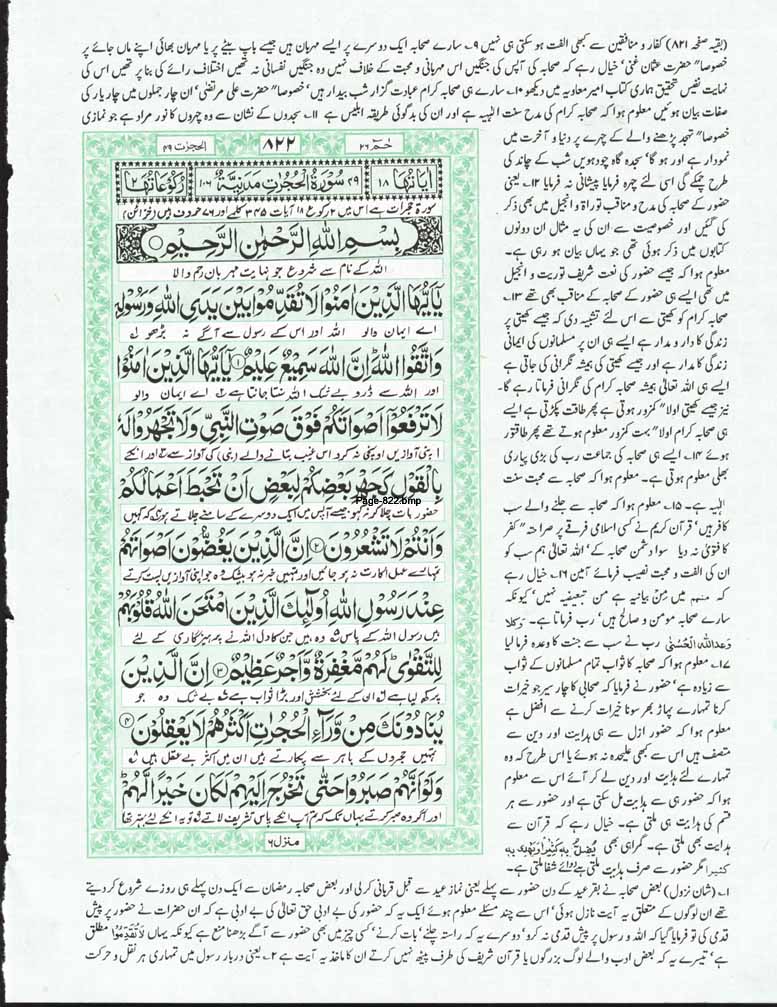 (بقیہ صفحہ ۸۲۱) کفار و منافقین سے کبھی الفت ہو سکتی ہی نہیں ۹۔ سارے صحابہ ایک دوسرے پر ایسے مہربان ہیں جیسے باپ بیٹے پر یا مہربان بھائی اپنے ماں جائے پر
خصوصا" حضرت عثمان غنی' خیال رہے کہ صحابہ کی آپس کی جنگیں اس مہربانی و محبت کے خلاف نہیں وہ جنگیں نفسانی نہ تھیں اختلاف رائے کی بنا پر تھیں اس کی
نہایت نفیس تحقیق ہماری کتاب امیر معاویہ میں دیکھو ۱۰۔ سارے ہی صحابہ کرام عبادت گزار شب بیدار ہیں' خصوصا" حضرت علی مرتضی' ان چار جملوں میں چار یار کی
صفات بیان ہوئیں معلوم ہوا کہ صحابہ کرام کی مدح سنت الٰہیہ ہے اور ان کی بدگوئی طریقہ ابلیس ہے ۱۱۔ سجدوں کے نشان سے وہ چہروں کا نور مراد ہے جو نمازی
خصوصا" تہجد پڑھنے والے کے چہرے پر دنیا و آخرت میں
نمودار ہے اور ہو گا' سجدہ گاہ چودھویں شب کے چاند کی
طرح چمکے گی اسی لئے چہرہ فرمایا پیشانی نہ فرمایا ۱۲۔ یعنی
حضور کے صحابہ کی مدح و مناقب توراۃ و انجیل میں بھی ذکر
کی گئیں اور خصوصیت سے ان کی یہ مثال ان دونوں
کتابوں میں ذکر ہوئی تھی جو یہاں بیان ہو رہی ہے۔
معلوم ہوا کہ جیسے حضور کی نعت شریف توریت و انجیل
میں تھی ایسے ہی حضور کے صحابہ کے مناقب بھی تھے ۱۳۔
صحابہ کرام کو کھیتی سے اس لئے تشبیہ دی کہ جیسے کھیتی پر
زندگی کا دار و مدار ہے ایسے ہی ان پر مسلمانوں کی ایمانی
زندگی کا مدار ہے اور جیسے کھیتی کی ہمیشہ نگرانی کی جاتی ہے
ایسے ہی اللہ تعالیٰ ہمیشہ صحابہ کرام کی نگرانی فرماتا رہے گا۔
نیز جیسے کھیتی اولا" کمزور ہوتی ہے پھر طاقت پکڑتی ہے ایسے
ہی صحابہ کرام اولا" بہت کمزور معلوم ہوتے تھے پھر طاقتور
ہوئے ۱۴۔ ایسے ہی صحابہ کی جماعت رب کی بڑی پیاری
بھلی معلوم ہوتی ہے۔ معلوم ہوا کہ صحابہ سے محبت سنت
الٰہیہ ہے۔ ۱۵۔ معلوم ہوا کہ صحابہ سے جلنے والے سب
کافر ہیں' قرآن کریم نے کسی اسلامی فرقے پر صراحتہ" کفر
کا فتویٰ نہ دیا سوا دشمن صحابہ کے' اللہ تعالیٰ ہم سب کو
ان کی الفت و محبت نصیب فرمائے آمین ۱۶۔ خیال رہے
کہ منہم میں مِنْ بیانیہ ہے من تبعیفیہ نہیں' کیونکہ
سارے صحابہ مومن و صالح ہیں' رب فرماتا ہے۔ وَكُلًّا
وَعَدَاللّٰهُ الْحُسْنٰى رب نے سب سے جنت کا وعدہ فرما لیا
۱۷۔ معلوم ہوا کہ صحابہ کا ثواب تمام مسلمانوں کے ثواب
سے زیادہ ہے' حضور نے فرمایا کہ صحابی کا چار سیر جو خیرات
کرنا تمہارے پہاڑ بھر سونا خیرات کرنے سے افضل ہے
معلوم ہوا کہ حضور ازل سے ہی ہدایت اور دین سے
متصف ہیں اس سے کبھی علیحدہ نہ ہوئے یا اس طرح کہ وہ
تمہارے لئے ہدایت اور دین لے کر آئے اس سے معلوم
ہوا کہ حضور ہی سے ہدایت مل سکتی ہے اور حضور سے ہر
قسم کی ہدایت ہی ملتی ہے۔ خیال رہے کہ قرآن سے
ہدایت بھی ملتی ہے۔ گمراہی بھی يُضِلُّ بِهٖ كَثِيْرًا وَّيَهْدِيْ بِهٖ
كَثِيْرًا مگر حضور سے صرف ہدایت ملتی ہے دوائے شفا ملتی ہے۔
الحجرٰت ۴۹
۸۲۲
حٰمٓ ۲۶
اٰيَاتُهَا ۱۸
۴۹ سُوْرَةُ الْحُجُرٰتِ مَدَنِيَّةٌ ۱۰۶
رُكُوْعَاتُهَا ۲
سورۃ حجرات ہے اس میں ۲ رکوع ۱۸ آیات ۳۴۵ کلمے اور ۱۴۷۶ حروف ہیں (خزائن)
بِسْمِ اللّٰهِ الرَّحْمٰنِ الرَّحِيْمِ
اللہ کے نام سے شروع جو نہایت مہربان رحم والا
يٰٓاَيُّهَا الَّذِيْنَ اٰمَنُوْا لَا تُقَدِّمُوْا بَيْنَ يَدَيِ اللّٰهِ وَرَسُوْلِهٖ
اے ایمان والو اللہ اور اس کے رسول سے آگے نہ بڑھو
وَاتَّقُوا اللّٰهَ ؕ اِنَّ اللّٰهَ سَمِيْعٌ عَلِيْمٌ ۱ يٰٓاَيُّهَا الَّذِيْنَ اٰمَنُوْا
اور اللہ سے ڈرو بے شک اللہ سنتا جانتا ہے اے ایمان والو
لَا تَرْفَعُوْٓا اَصْوَاتَكُمْ فَوْقَ صَوْتِ النَّبِيِّ وَلَا تَجْهَرُوْا لَهٗ
اپنی آوازیں اونچی نہ کرو اس غیب بتانے والے (نبی) کی آواز سے اور انکے
بِالْقَوْلِ كَجَهْرِ بَعْضِكُمْ لِبَعْضٍ اَنْ تَحْبَطَ اَعْمَالُكُمْ
Page-822.bmp
حضور بات چلا کر نہ کہو جیسے آپس میں ایک دوسرے کے سامنے چلاتے ہو کہ کہیں
وَاَنْتُمْ لَا تَشْعُرُوْنَ ۲ اِنَّ الَّذِيْنَ يَغُضُّوْنَ اَصْوَاتَهُمْ
تمہارے عمل اکارت نہ ہو جائیں اور تمہیں خبر نہ ہو بیشک وہ جو اپنی آوازیں پست کرتے
عِنْدَ رَسُوْلِ اللّٰهِ اُولٰٓئِكَ الَّذِيْنَ امْتَحَنَ اللّٰهُ قُلُوْبَهُمْ
ہیں رسول اللہ کے پاس وہ ہیں جن کا دل اللہ نے پرہیزگاری کے لئے
لِلتَّقْوٰى ؕ لَهُمْ مَّغْفِرَةٌ وَّاَجْرٌ عَظِيْمٌ ۳ اِنَّ الَّذِيْنَ
پرکھ لیا ہے ان کے لئے بخشش اور بڑا ثواب ہے بے شک وہ جو
يُنَادُوْنَكَ مِنْ وَّرَآءِ الْحُجُرٰتِ اَكْثَرُهُمْ لَا يَعْقِلُوْنَ ۴
تمہیں حجروں کے باہر سے پکارتے ہیں ان میں اکثر بے عقل ہیں
وَلَوْ اَنَّهُمْ صَبَرُوْا حَتّٰى تَخْرُجَ اِلَيْهِمْ لَكَانَ خَيْرًا لَّهُمْ ؕ
اور اگر وہ صبر کرتے یہاں تک کہ تم آپ انکے پاس تشریف لاتے تو یہ انکے لئے بہتر تھا
منزل ۶
۱۔ (شان نزول) بعض صحابہ نے بقر عید کے دن حضور سے پہلے یعنی نماز عید سے قبل قربانی کر لی اور بعض صحابہ رمضان سے ایک دن پہلے ہی روزے شروع کر دیتے
تھے ان لوگوں کے متعلق یہ آیت نازل ہوئی' اس سے چند مسئلے معلوم ہوئے ایک یہ کہ حضور کی بے ادبی حق تعالیٰ کی بے ادبی ہے کہ ان حضرات نے حضور پر پیش
قدمی کی تو فرمایا گیا کہ اللہ و رسول پر پیش قدمی نہ کرو' دوسرے یہ کہ راستہ چلنے' بات کرنے' کسی چیز میں بھی حضور سے آگے بڑھنا منع ہے کیونکہ یہاں لَا تُقَدِّمُوْا مطلق
ہے' تیسرے یہ کہ بعض ادب والے لوگ بزرگوں یا قرآن شریف کی طرف پیٹھ نہیں کرتے ان کا ماخذ یہ آیت ہے ۲۔ یعنی دربار رسول میں تمہاری ہر نقل و حرکت